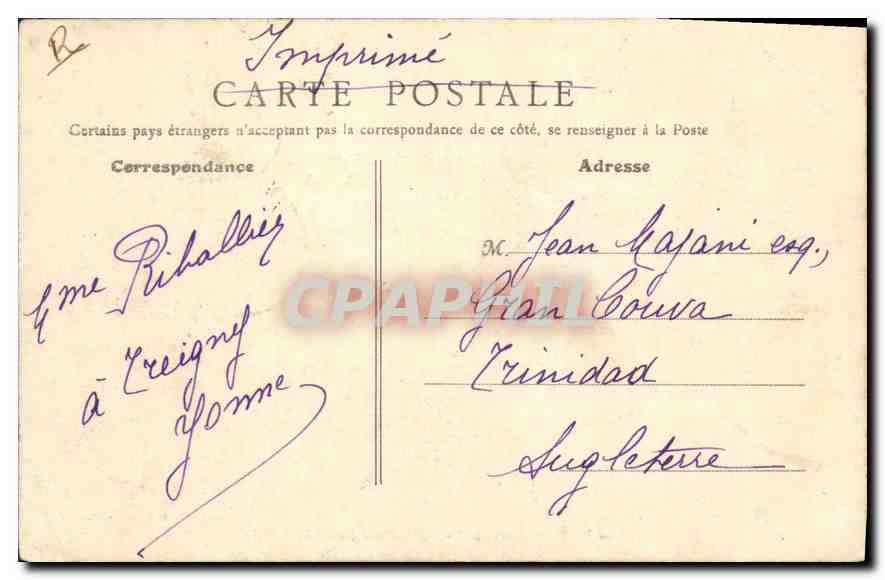 R
Imprimé
CARTE POSTALE
Certains pays étrangers n'acceptant pas la correspondance de ce côté, se renseigner à la Poste
Correspondance
Mme Riballier
à Treigny
Yonne
Adresse
M. Jean Majani esq.,
Gran Couva
Trinidad
Angleterre
CPAPHIL